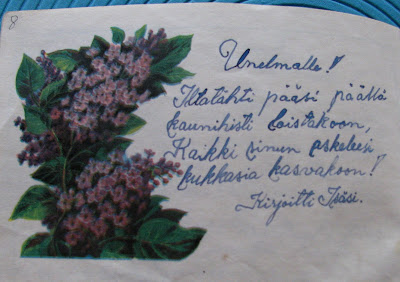 8
Unelmalle!
Iltatähti pääsi päällä
kaunihisti loistakoon,
Kaikki sinun askeleesi
kukkasia kasvakoon!
Kirjoitti Isäsi.